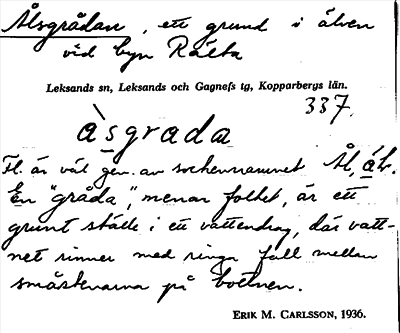 Ålsgrådan, ett grund i älven
vid byn Rälta
Leksands sn, Leksands och Gagnefs tg, Kopparbergs län.
337.
àsgrada
Fl. är väl gen. av sockennamnet Ål,
En "gråda", menar folket, är ett
grunt ställe i ett vattendrag, där vatt-
net rinner med ringa fall mellan
småstenarna på bottnen.
ERIK M. CARLSSON, 1936.